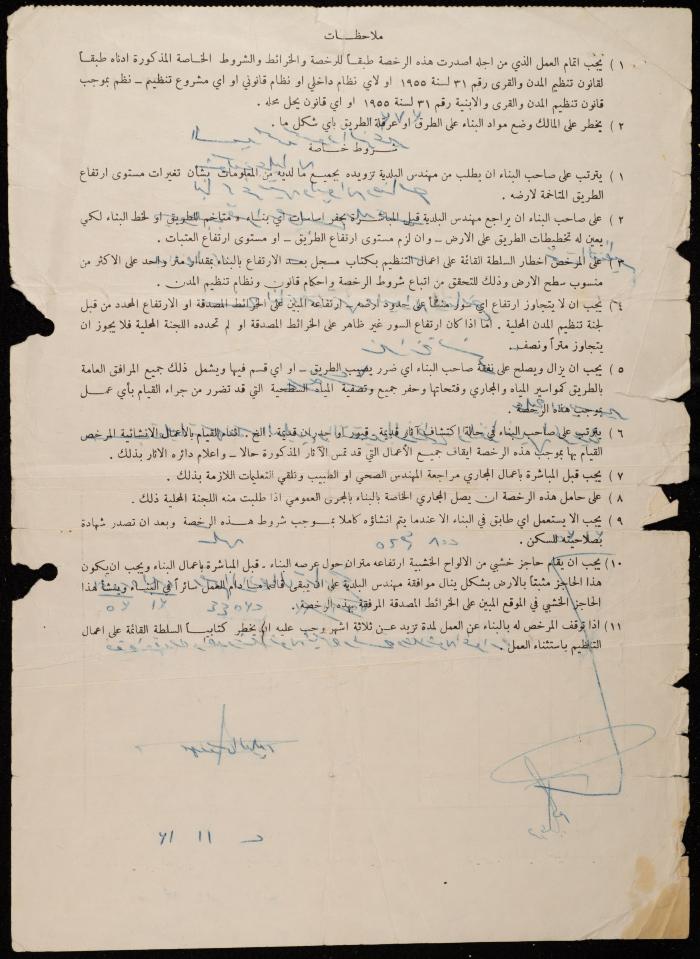 ملاحظات
١ ) يجب اتمام العمل الذي من اجله اصدرت هذه الرخصة طبقاً للرخصة والخرائط والشروط الخاصة المذكورة ادناه طبقاً
لقانون تنظيم المدن والقرى رقم ٣١ لسنة ١٩٥٥ او لاي نظام داخلي او نظام قانوني او اي مشروع تنظيم – نظم بموجب
قانون تنظيم المدن والقرى والابنية رقم ٣١ لسنة ١٩٥٥ او اي قانون يحل محله .
٢ ) يحظر على المالك وضع مواد البناء على الطرق او عرقلة الطريق باي شكل ما .
شروط خاصة
١ ) يترتب على صاحب البناء ان يطلب من مهندس البلدية تزويده بجميع ما لديه من المعلومات بشأن تغيرات مستوى ارتفاع
الطريق المتاخمة لارضه .
٢ ) على صاحب البناء ان يراجع مهندس البلدية قبل المباشرة بحفر اساسات اي بناء متاخم للطريق او لخط البناء لكي
يعين له تخطيطات الطريق على الارض – وان لزم مستوى ارتفاع الطريق – او مستوى ارتفاع العتبات .
٣ ) على المرخص اخطار السلطة القائمة على اعمال التنظيم بكتاب مسجل بعد الارتفاع بالبناء بمقدار متر واحد على الاكثر من
منسوب سطح الارض وذلك للتحقق من اتباع شروط الرخصة واحكام قانون ونظام تنظيم المدن .
٤ ) يجب ان لا يتجاوز ارتفاع اي سور منشأ على حدود ارضه – ارتفاعه المبين على الخرائط المصدقة او الارتفاع المحدد من قبل
لجنة تنظيم المدن المحلية . اما اذا كان ارتفاع السور غير ظاهر على الخرائط المصدقة او لم تحدده اللجنة المحلية فلا يجوز ان
يتجاوز متراً ونصف .
٥ ) يجب ان يزال ويصلح على نفقة صاحب البناء اي ضرر يصيب الطريق – او اي قسم فيها ويشمل ذلك جميع المرافق العامة
بالطريق كمواسير المياه والمجاري وفتحاتها وحفر جميع وتصفية المياه السطحية التي قد تضرر من جراء القيام بأي عمل
بموجب هذه الرخصة
٦ ) يترتب على صاحب البناء في حالة اكتشاف آثار قديمة – قبور او جدران قديمة . الخ . اثناء القيام بالأعمال الانشائية المرخص
القيام بها بموجب هذه الرخصة ايقاف جميع الأعمال التي قد تمس الآثار المذكورة حالا – واعلام دائره الاثار بذلك .
٧ ) يجب قبل المباشرة باعمال المجاري مراجعة المهندس الصحي او الطبيب وتلقي التعليمات اللازمة بذلك .
٨ ) على حامل هذه الرخصة ان يصل المجاري الخاصة بالبناء بالمجرى العمومي اذا طلبت منه اللجنة المحلية ذلك .
٩ ) يجب الا يستعمل اي طابق في البناء الا عندما يتم انشاؤه كاملا بموجب شروط هذه الرخصة وبعد ان تصدر شهادة
بصلاحيته للسكن .
١٠ ) يجب ان يقام حاجز خشبي من الالواح الخشبية ارتفاعه متران حول عرصه البناء – قبل المباشرة باعمال البناء ويجب ان يكون
هذا الحاجز مثبتاً بالارض بشكل ينال موافقة مهندس البلدية على ان يبقى قائما ما دام العمل سائراً في البناء وينشأ هذا
الحاجز الخشبي في الموقع المبين على الخرائط المصدقة المرفقة بهذه الرخصة .
١١ ) اذا توقف المرخص له بالبناء عن العمل لمدة تزيد عن ثلاثة اشهر وجب عليه ان يخطر كتابياً السلطة القائمة على اعمال
التنظيم باستئناء العمل .